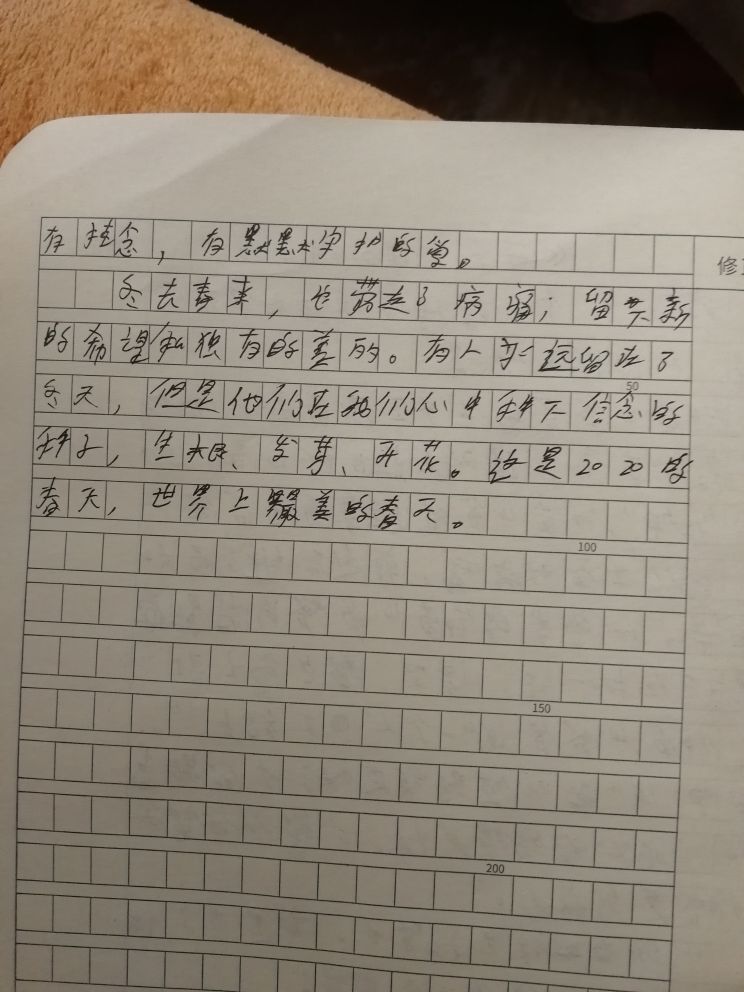 有挂念，有默默守护的学。
修
冬去春来，它带走了病痛；留下新
的希望和独有的美的。有人永远留在了
50
冬天，但是他们在我们心中种下信念的
种子，生根、发芽、开花。这是2020的
春天，世界上最美的春天。
100
150
200